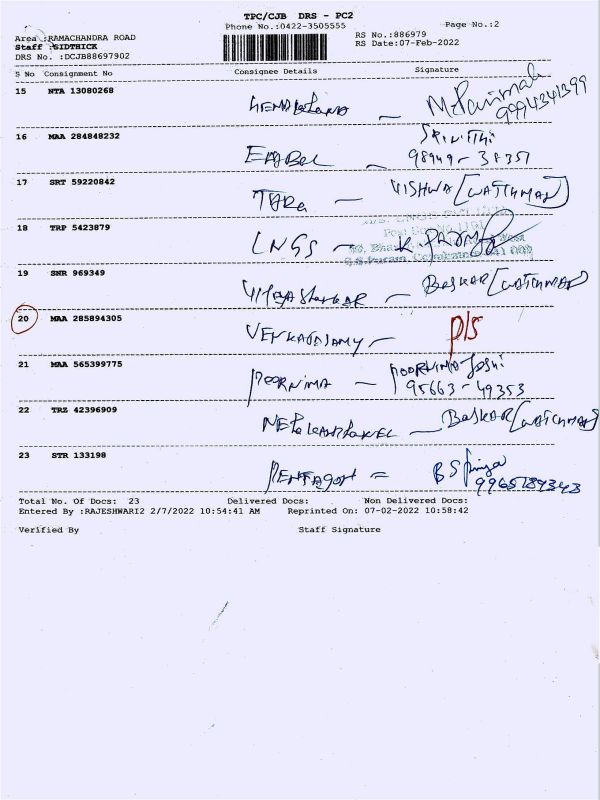 TPC/CJB DRS - PC2
Phone No.:0422-3505555 Page No.:2
Area :RAMACHANDRA ROAD RS No.:886979
Staff :SIDTHICK RS Date:07-Feb-2022
DRS No. :DCJB88697902
S No Consignment No Consignee Details Signature
15 NTA 13080268
99943 41399
16 MAA 284848232
98949-38351
17 SRT 59220842 VISHWA [WATCHMAN]
TARA -
18 TRP 5423879
LNGS -
19 SNR 969349 BASKAR [WATCHMAN]
20 MAA 285894305 P/S
21 MAA 565399775 POORNIMA JOSHI
POORNIMA - 95663-49353
22 TRZ 42396909 BASKAR [WATCHMAN]
23 STR 133198
PENTAGON =
Total No. Of Docs: 23 Delivered Docs: Non Delivered Docs:
Entered By :RAJESHWARI2 2/7/2022 10:54:41 AM Reprinted On: 07-02-2022 10:58:42
Verified By Staff Signature